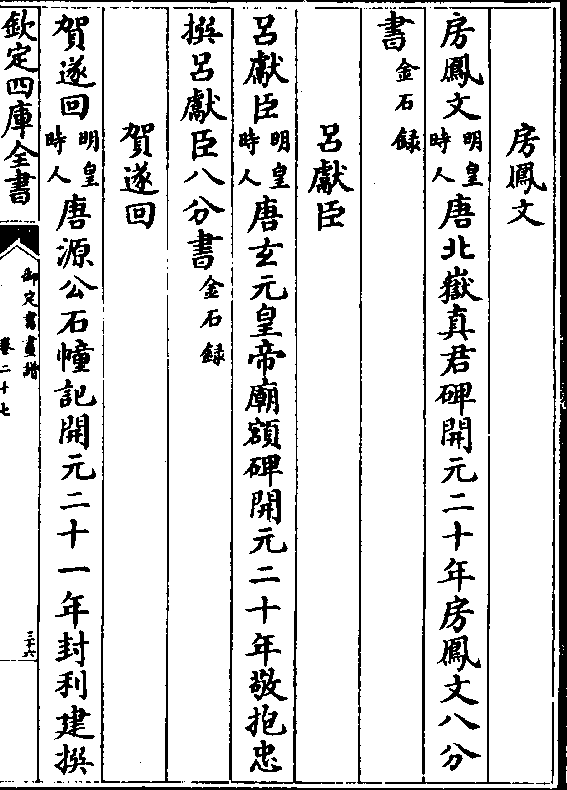 房鳳文
房鳳文明皇時人唐北嶽真君碑開元二十年房鳳文八分
書金石録
呂獻臣
呂獻臣明皇時人唐玄元皇帝廟額碑開元二十年敬抱忠
撰呂獻臣八分書金石録
賀遂回
賀遂回明皇時人唐源公石幢記開元二十一年封利建撰
欽定四庫全書
御定書畫譜
卷二十七
三六